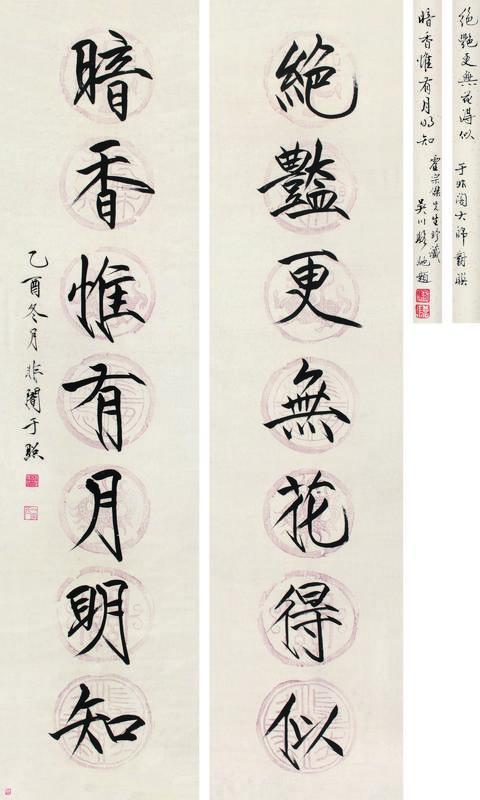 絕艷更無花得似
暗香惟有月明知
乙酉冬月非闇于照
絕艷更無花得似 于非闇大師對聯
暗香惟有月明知 霍宗傑先生珍藏